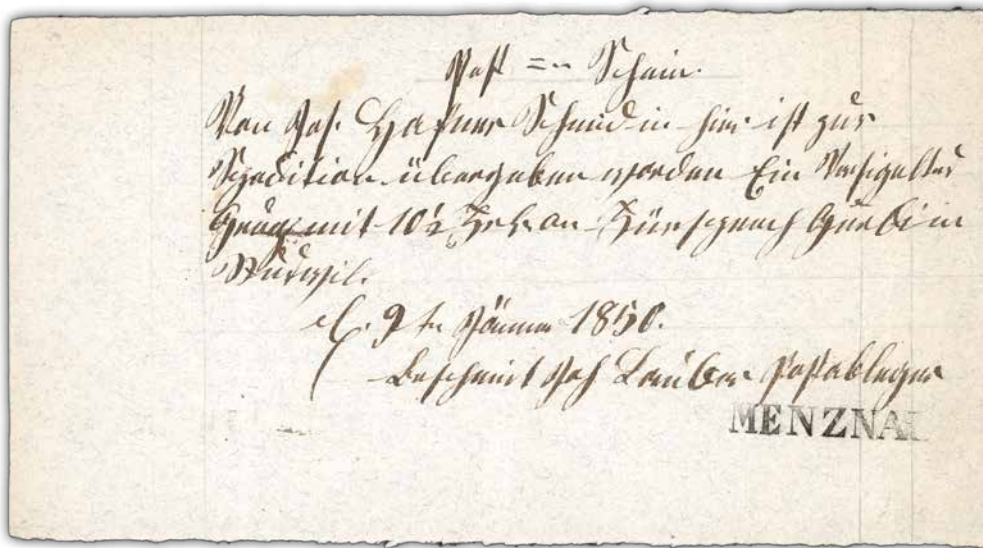 Post = Schein.
Von Jos. Hafner Schmid in hier ist zur
Spedition übergeben worden Ein Versigelter
mit 10½ an
Ruswil.
d. 9te Jänner 1850.
Bescheint Jos Laüber Postableger
MENZNAU